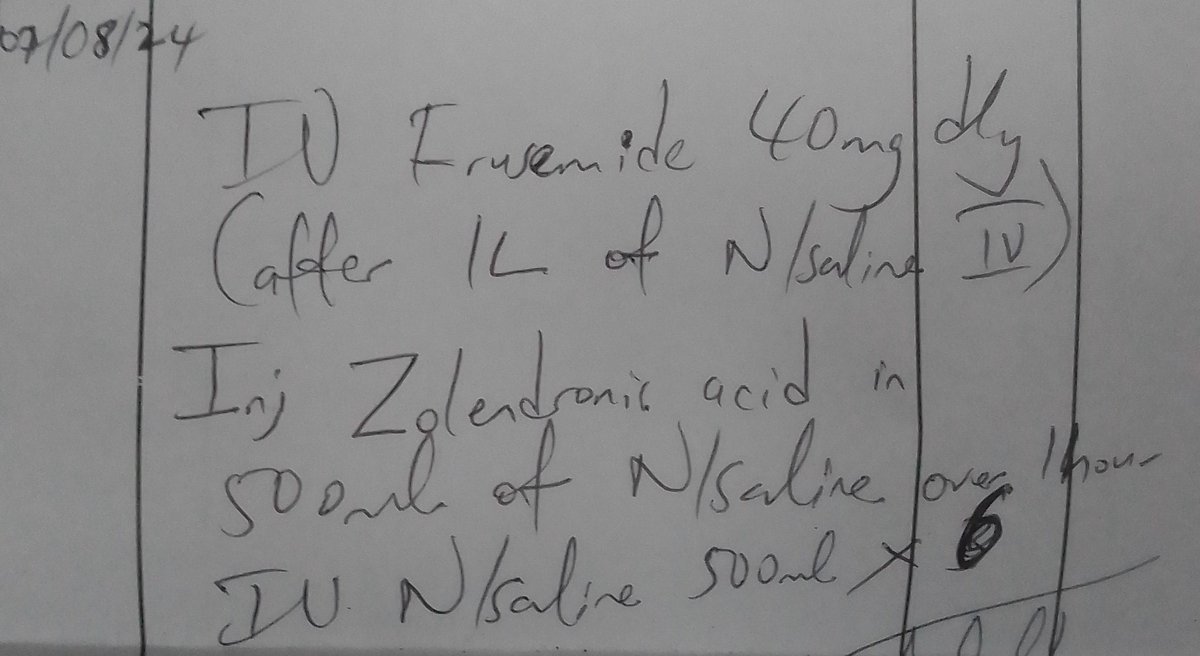 07/08/24
IV Frusemide 40mg dly
(after 1L of N/saline IV)
Inj Zolendronic acid in
500ml of N/saline over 1hour
IV N/saline 500ml x 6